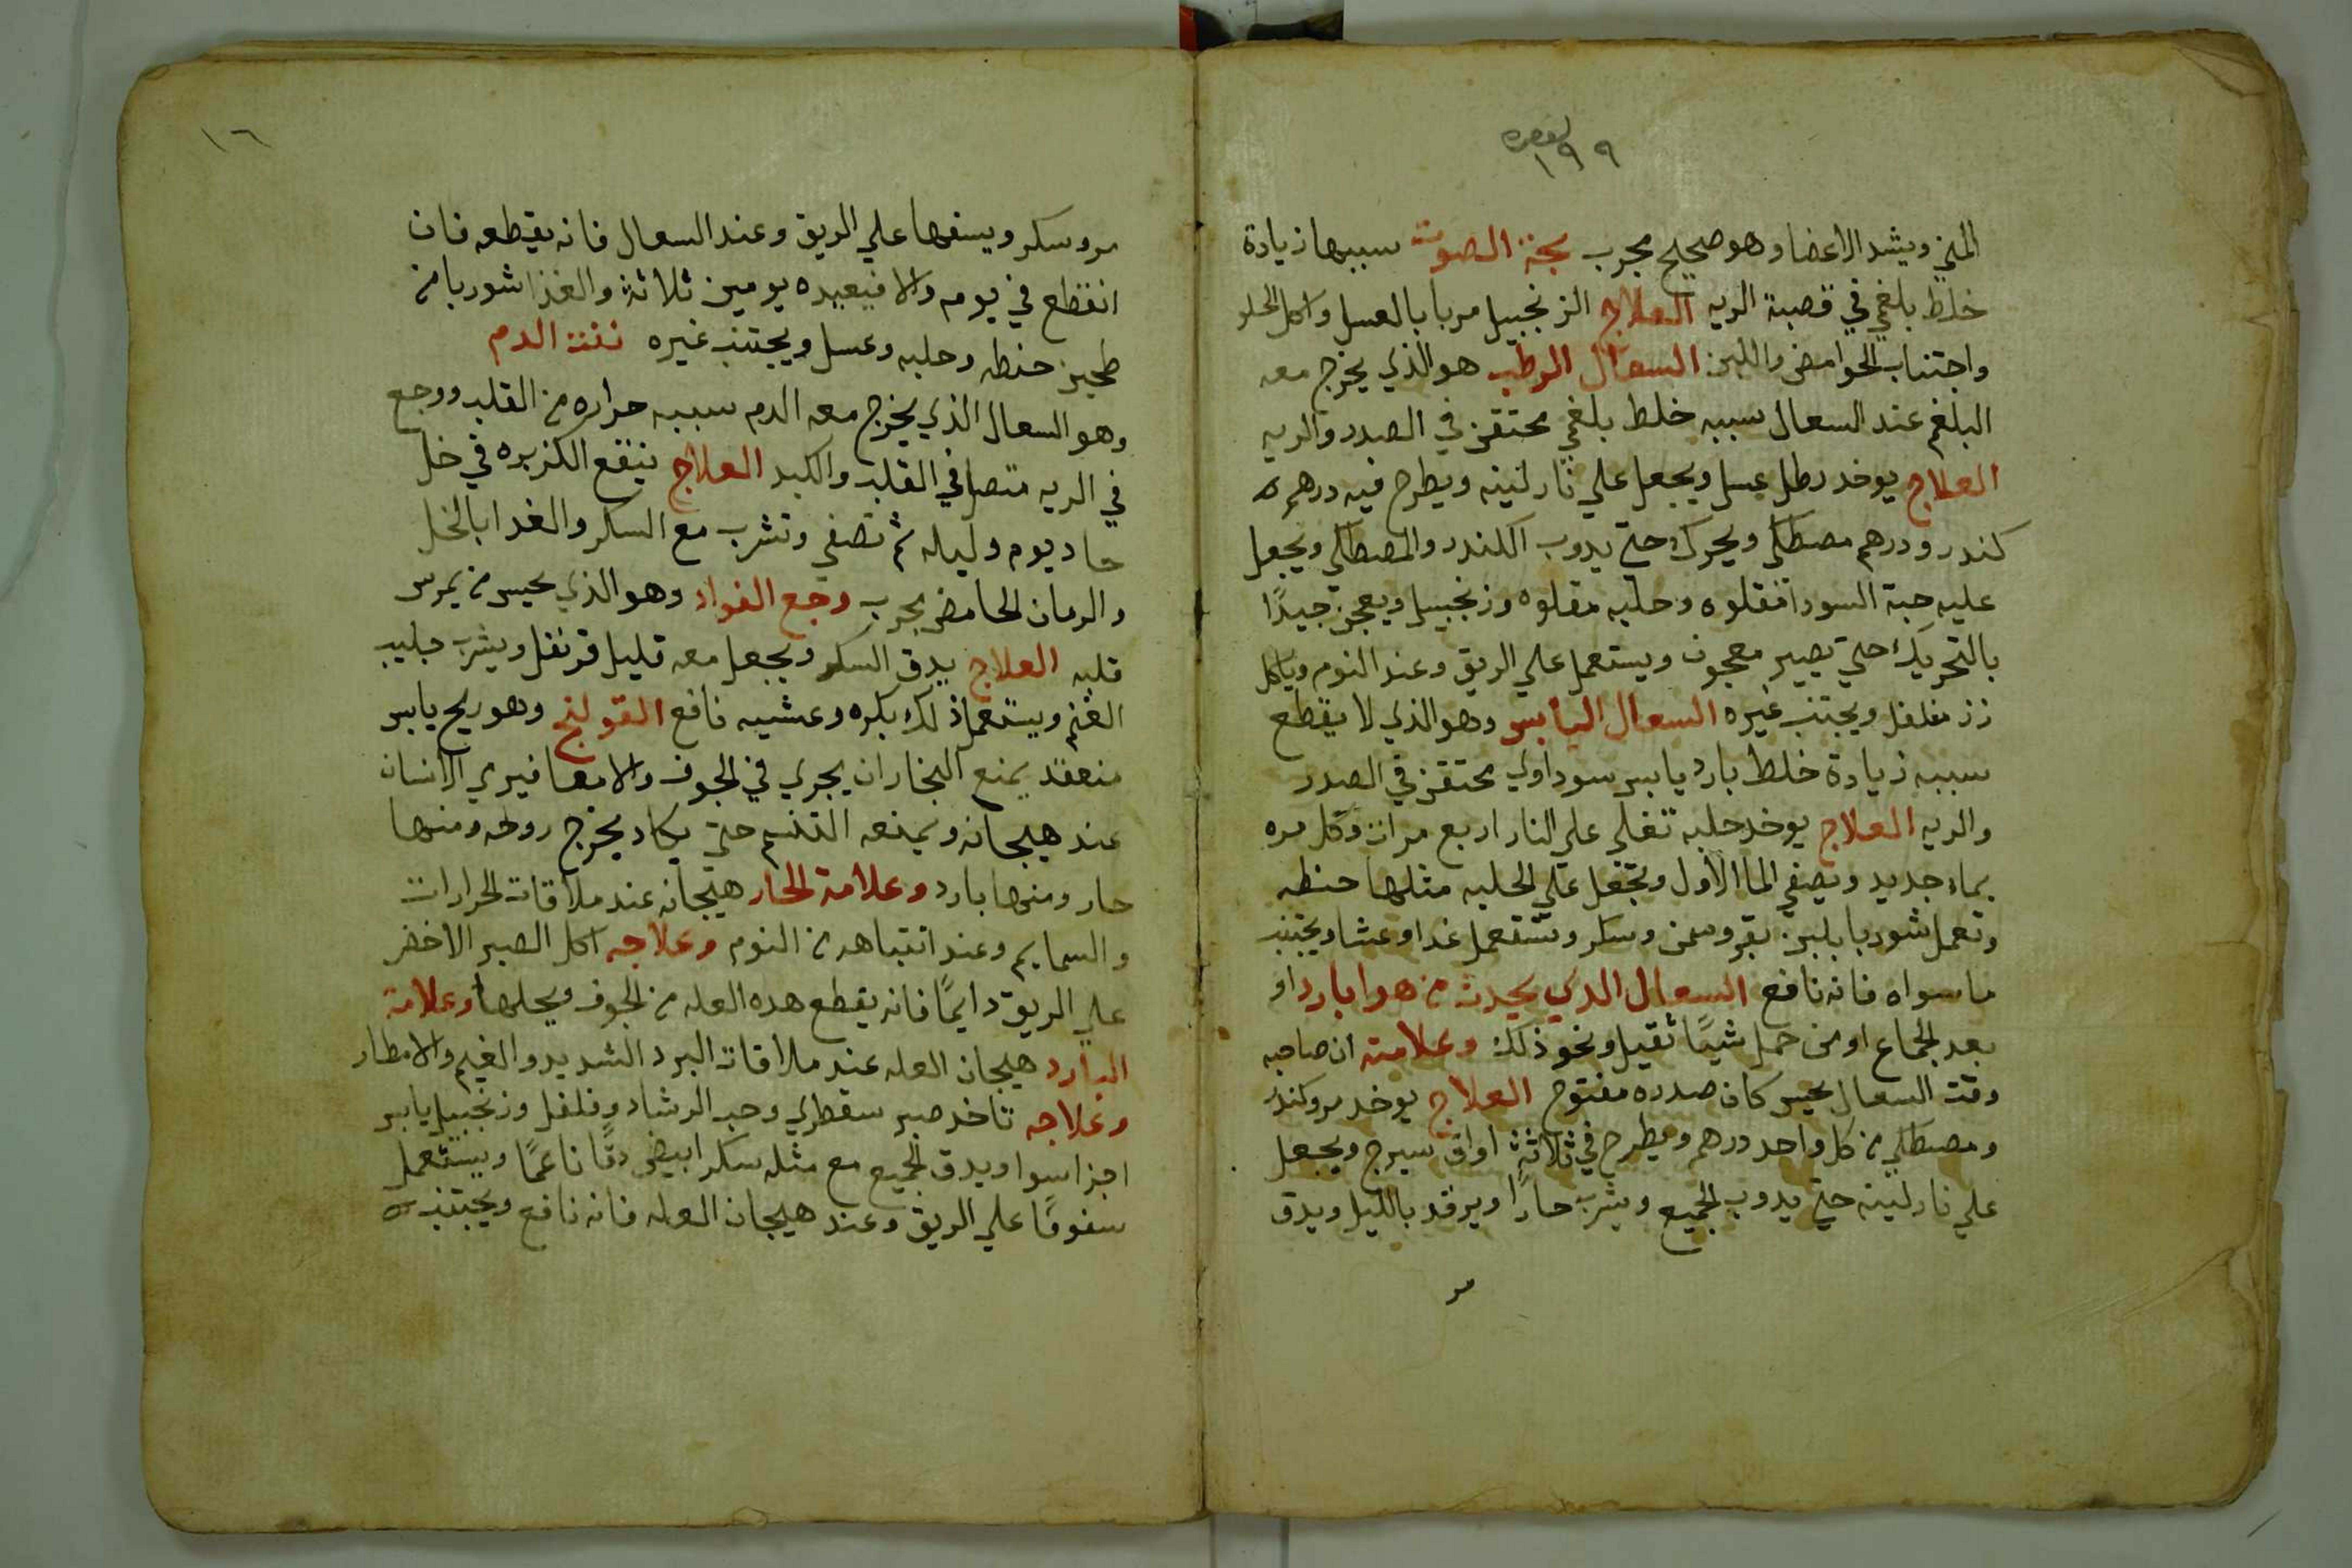 المني ويشد الاعضا وهو صحيح مجرب بحة الصوت سببها زيادة
خلط بلغمي في قصبة الريه العلاج الزنجبيل مربا بالعسل واكل الحلو
واجتناب الحوامض واللبن السعال الرطب هو الذي يخرج معه
البلغم عند السعال سببه خلط بلغمي محتقن في الصدر والريه
العلاج يوخد رطل عسل ويجعل علي نار لينه ويطرح فيه درهم
كندر ودرهم مصطكي ويحرك حتي يدوب الكندر والمصطكي ويجعل
عليه حبة السودا مقلوه وحلبه مقلوه وزنجبيل ويعجن جيدًا
بالتحريك حتي يصير معجون ويستعمل علي الريق وعند النوم وياكل
رز مفلفل ويجتنب غيره السعال اليابس وهو الذي لا يقطع
سببه زيادة خلط بارد يابس سوداوي محتقن في الصدر
والريه العلاج يوخد حلبه تغلي علي النار اربع مرات وكل مره
بماء جديد ويصفي الما الاول وتجعل علي الحلبه مثلها حنطه
وتعمل شوربا بلبن بقر وسمن وسكر وتستعمل غدا وعشا ويجتنب
ما سواه فانه نافع السعال الدي يحدث من هوا بارد او
بعد الجماع او من حمل شيئًا ثقيل ونحو ذلك وعلامته ان صاحبه
وقت السعال يحس كان صدره مفتوح العلاج يوخد مر وكندر
ومصطكي من كل واحد درهم ويطرح في ثلاثة اواق سيرج ويجعل
علي نار لينه حتي يدوب الجميع ويشرب حارًا ويرقد بالليل ويدق
١٦
مر وسكر ويسفها علي الريق وعند السعال فانه يقطعه فان
انقطع في يوم والا فيعيده يومين ثلاثة والغذا شوربا من
طحين حنطه وحلبه وعسل ويجتنب غيره نفث الدم
وهو السعال الذي يخرج معه الدم سببه حراره من القلب ووجع
في الريه متصل في القلب والكبد العلاج ينقع الكزبره في خل
حاد يوم وليله ثم تصفي وتشرب مع السكر والغدا بالخل
والرمان الحامض مجرب وجع الفواد وهو الذي يحس من يمرس
قلبه العلاج يدق السكر ويجعل معه قليل قرنفل ويشرب حليب
الغنم ويستعمل ذلك بكره وعشيه نافع القولنج وهو ريح يابس
منعقد يمنع البخار ان يجري في الجوف والامعا فيري الانسان
عند هيجانه ويمنعه التنفس حتي يكاد يخرج روحه ومنها
حار ومنها بارد وعلامة الحار هيجانه عند ملاقات الحرارات
والسمايم وعند انتباهه من النوم وعلاجه اكل الصبر الاخضر
علي الريق دايمًا فانه يقطع هده العله من الجوف ويحلها وعلامة
البارد هيجان العله عند ملاقات البرد الشديد والغيم والامطار
وعلاجه تاخد صبر سقطري وحب الرشاد وفلفل وزنجبيل يابس
اجزا سوا ويدق الجميع مع مثله سكر ابيض دقًا ناعمًا ويستعمل
سفوفًا علي الريق وعند هيجان العله فانه نافع ويجتنب